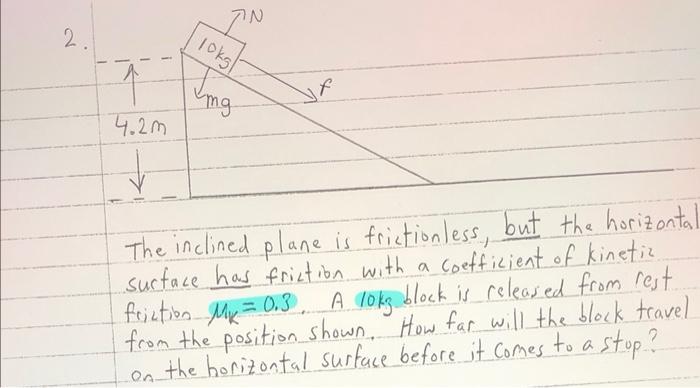 2.
N
10kg
f
mg
4.2m
The inclined plane is frictionless, but the horizontal
surface has friction with a coefficient of kinetic
friction μk = 0.3. A 10kg block is released from rest
from the position shown. How far will the block travel
on the horizontal surface before it comes to a stop?